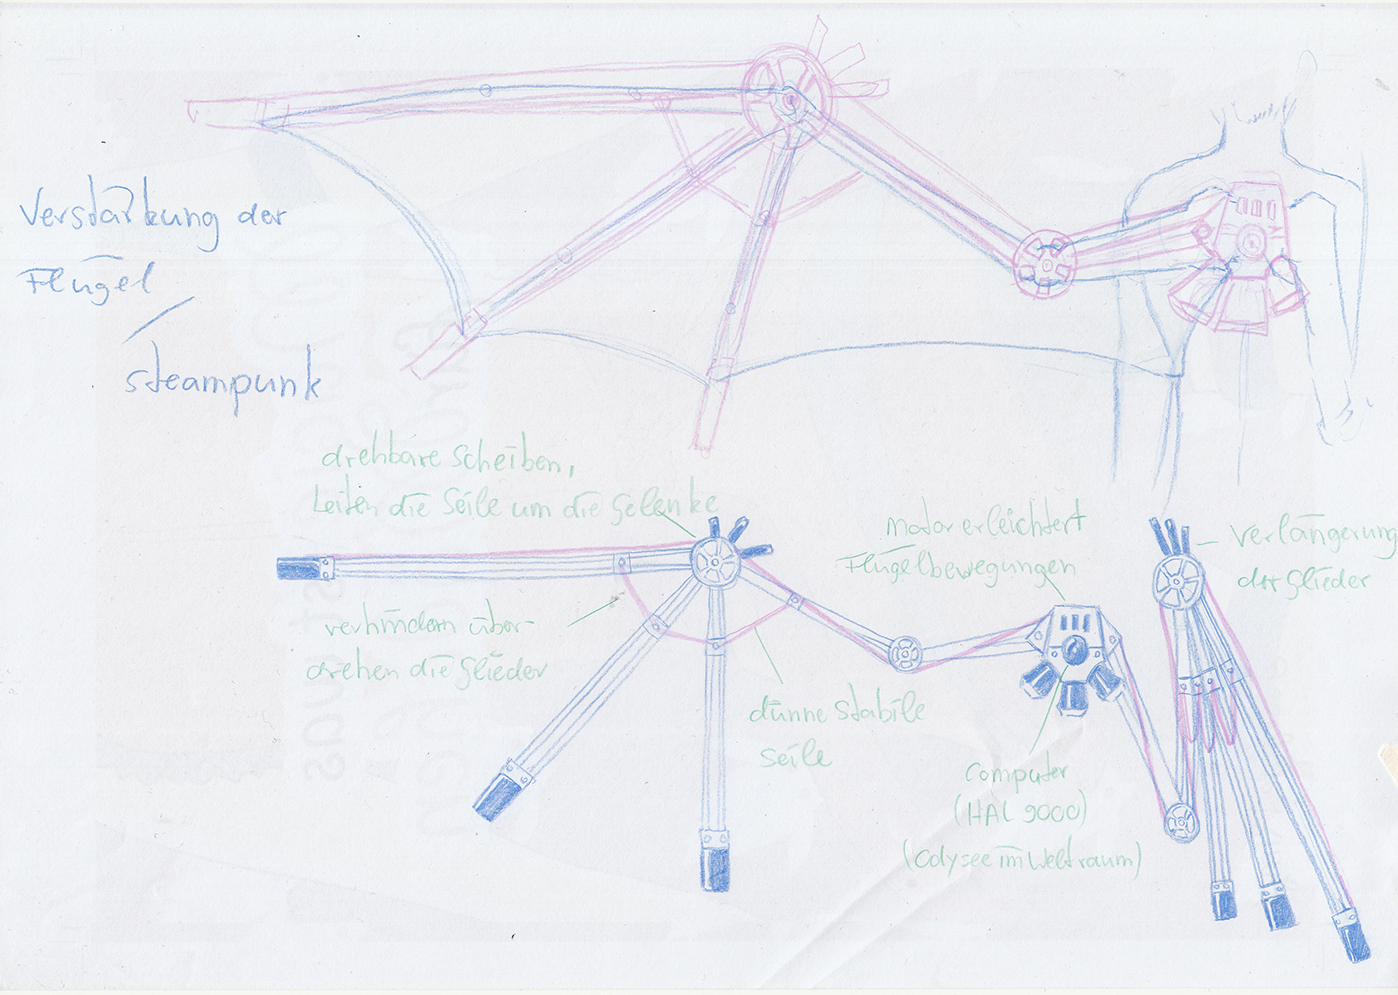 Verstärkung der
Flügel
/
Steampunk
drehbare Scheiben,
Leiten die Seile um die Gelenke
Motor erleichtert
Flügelbewegungen
Verlängerung
der Glieder
verhindern über-
drehen die Glieder
dünne stabile
Seile
Computer
(HAL 9000)
(Odysee im Weltraum)